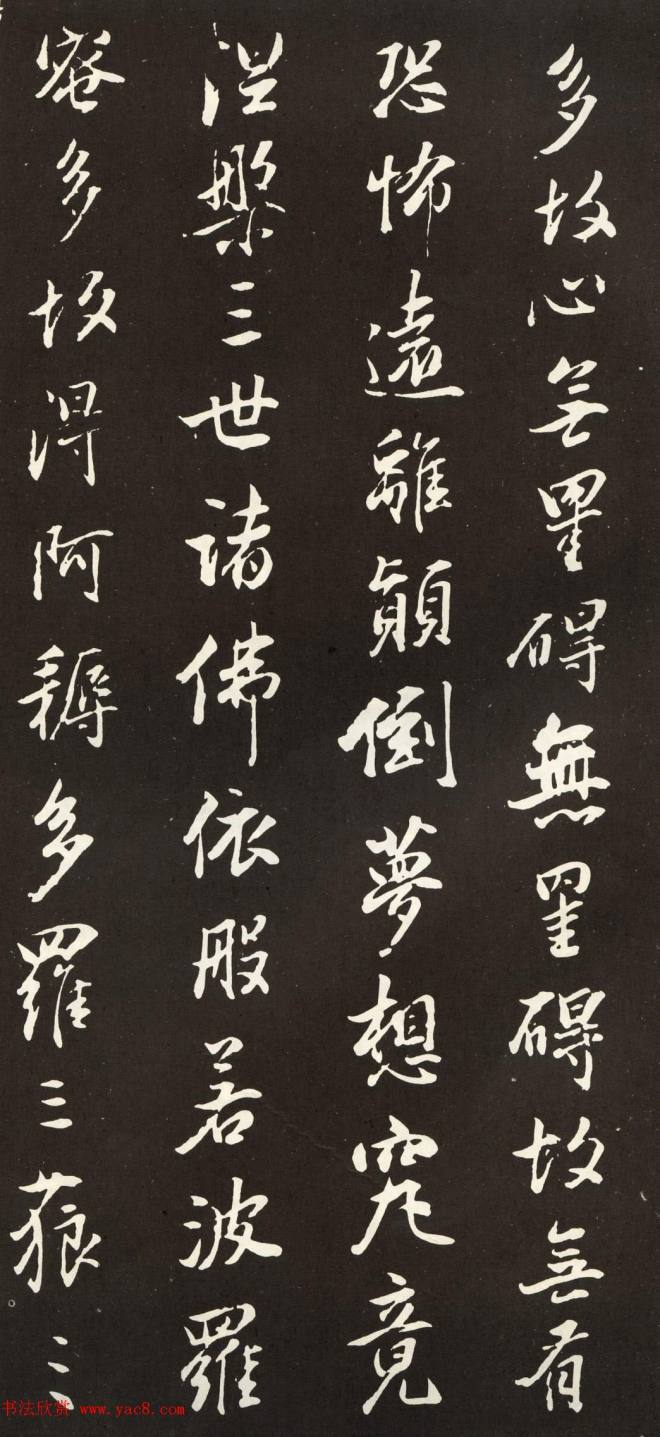 多故心无罣碍無罣碍故无有
恐怖遠離顛倒夢想究竟
涅槃三世諸佛依般若波羅
蜜多故得阿耨多羅三藐三
书法欣赏 www.yac8.com